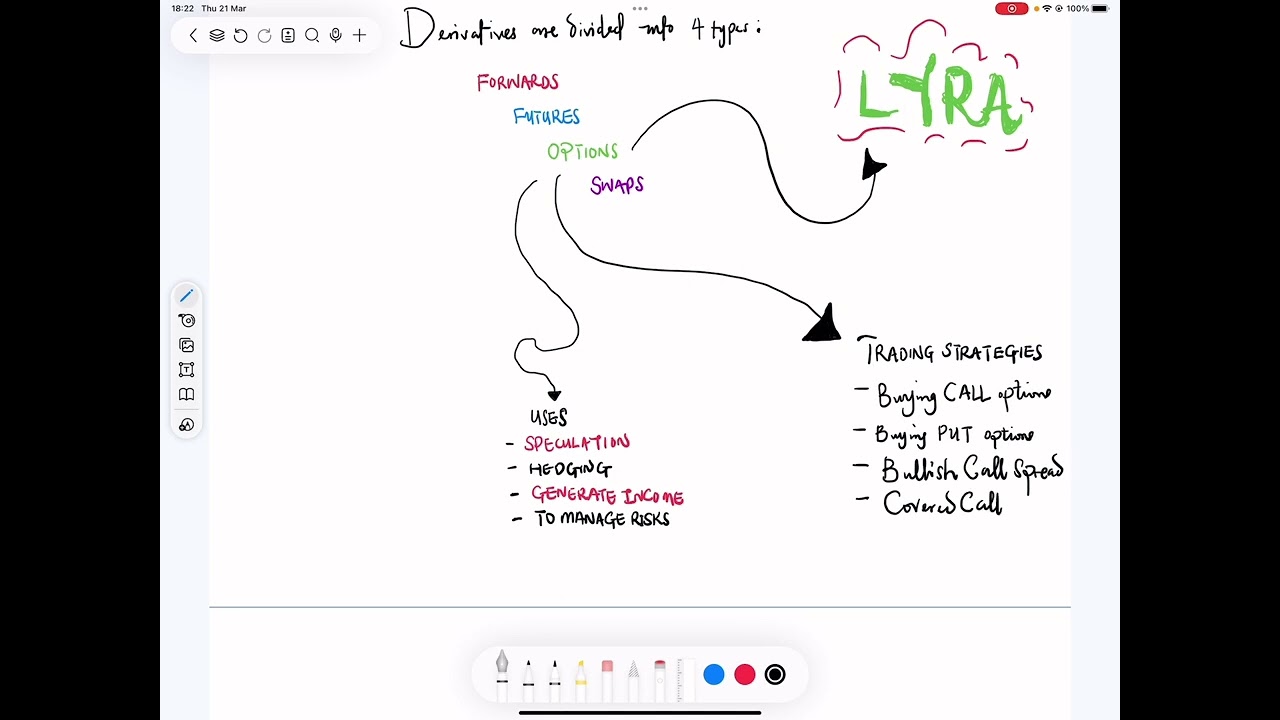 18:22 Thu 21 Mar
100%
Derivatives are divided into 4 types:
FORWARDS
FUTURES
OPTIONS
SWAPS
LYRA
USES
- SPECULATION
- HEDGING
- GENERATE INCOME
- TO MANAGE RISKS
TRADING STRATEGIES
- Buying CALL options
- Buying PUT options
- Bullish Call Spread
- Covered Call